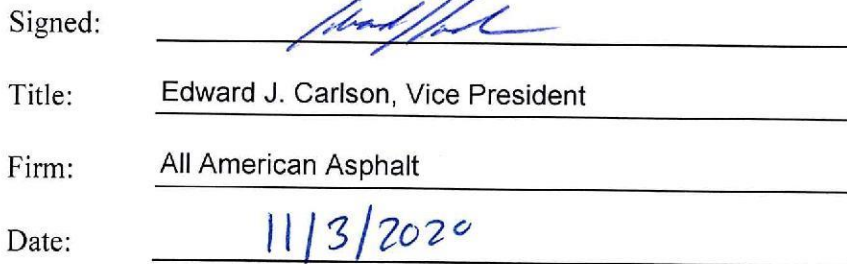 Signed:
Title: Edward J. Carlson, Vice President
Firm: All American Asphalt
Date: 11/3/2020